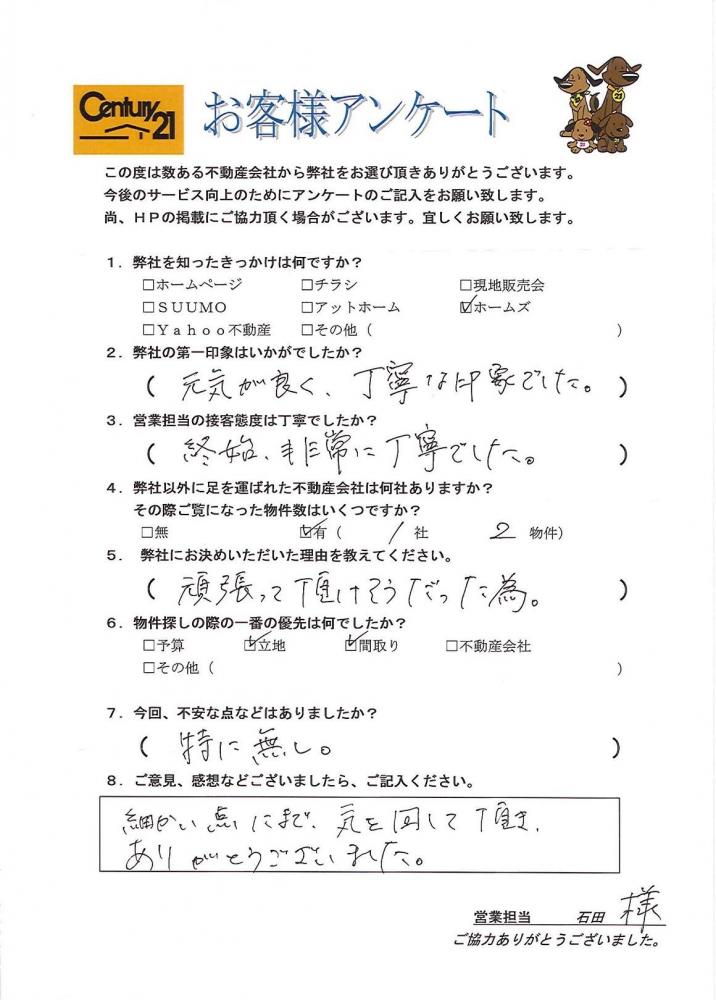 Century 21
お客様アンケート
21
21
この度は数ある不動産会社から弊社をお選び頂きありがとうございます。
今後のサービス向上のためにアンケートのご記入をお願い致します。
尚、HPの掲載にご協力頂く場合がございます。宜しくお願い致します。
1．弊社を知ったきっかけは何ですか？
□ホームページ □チラシ □現地販売会
□SUUMO □アットホーム ☑ホームズ
□Yahoo不動産 □その他（ ）
2．弊社の第一印象はいかがでしたか？
（ 元気が良く、丁寧な印象でした。 ）
3．営業担当の接客態度は丁寧でしたか？
（ 終始、非常に丁寧でした。 ）
4．弊社以外に足を運ばれた不動産会社は何社ありますか？
その際ご覧になった物件数はいくつですか？
□無 ☑有（ 1 社 2 物件）
5． 弊社にお決めいただいた理由を教えてください。
（ 頑張って頂けそうだった為。 ）
6．物件探しの際の一番の優先は何でしたか？
□予算 ☑立地 ☑間取り □不動産会社
□その他（ ）
7．今回、不安な点などはありましたか？
（ 特に無し。 ）
8．ご意見、感想などございましたら、ご記入ください。
細かい点にまで、気を回して頂き、
ありがとうございました。
営業担当 石田 様
ご協力ありがとうございました。